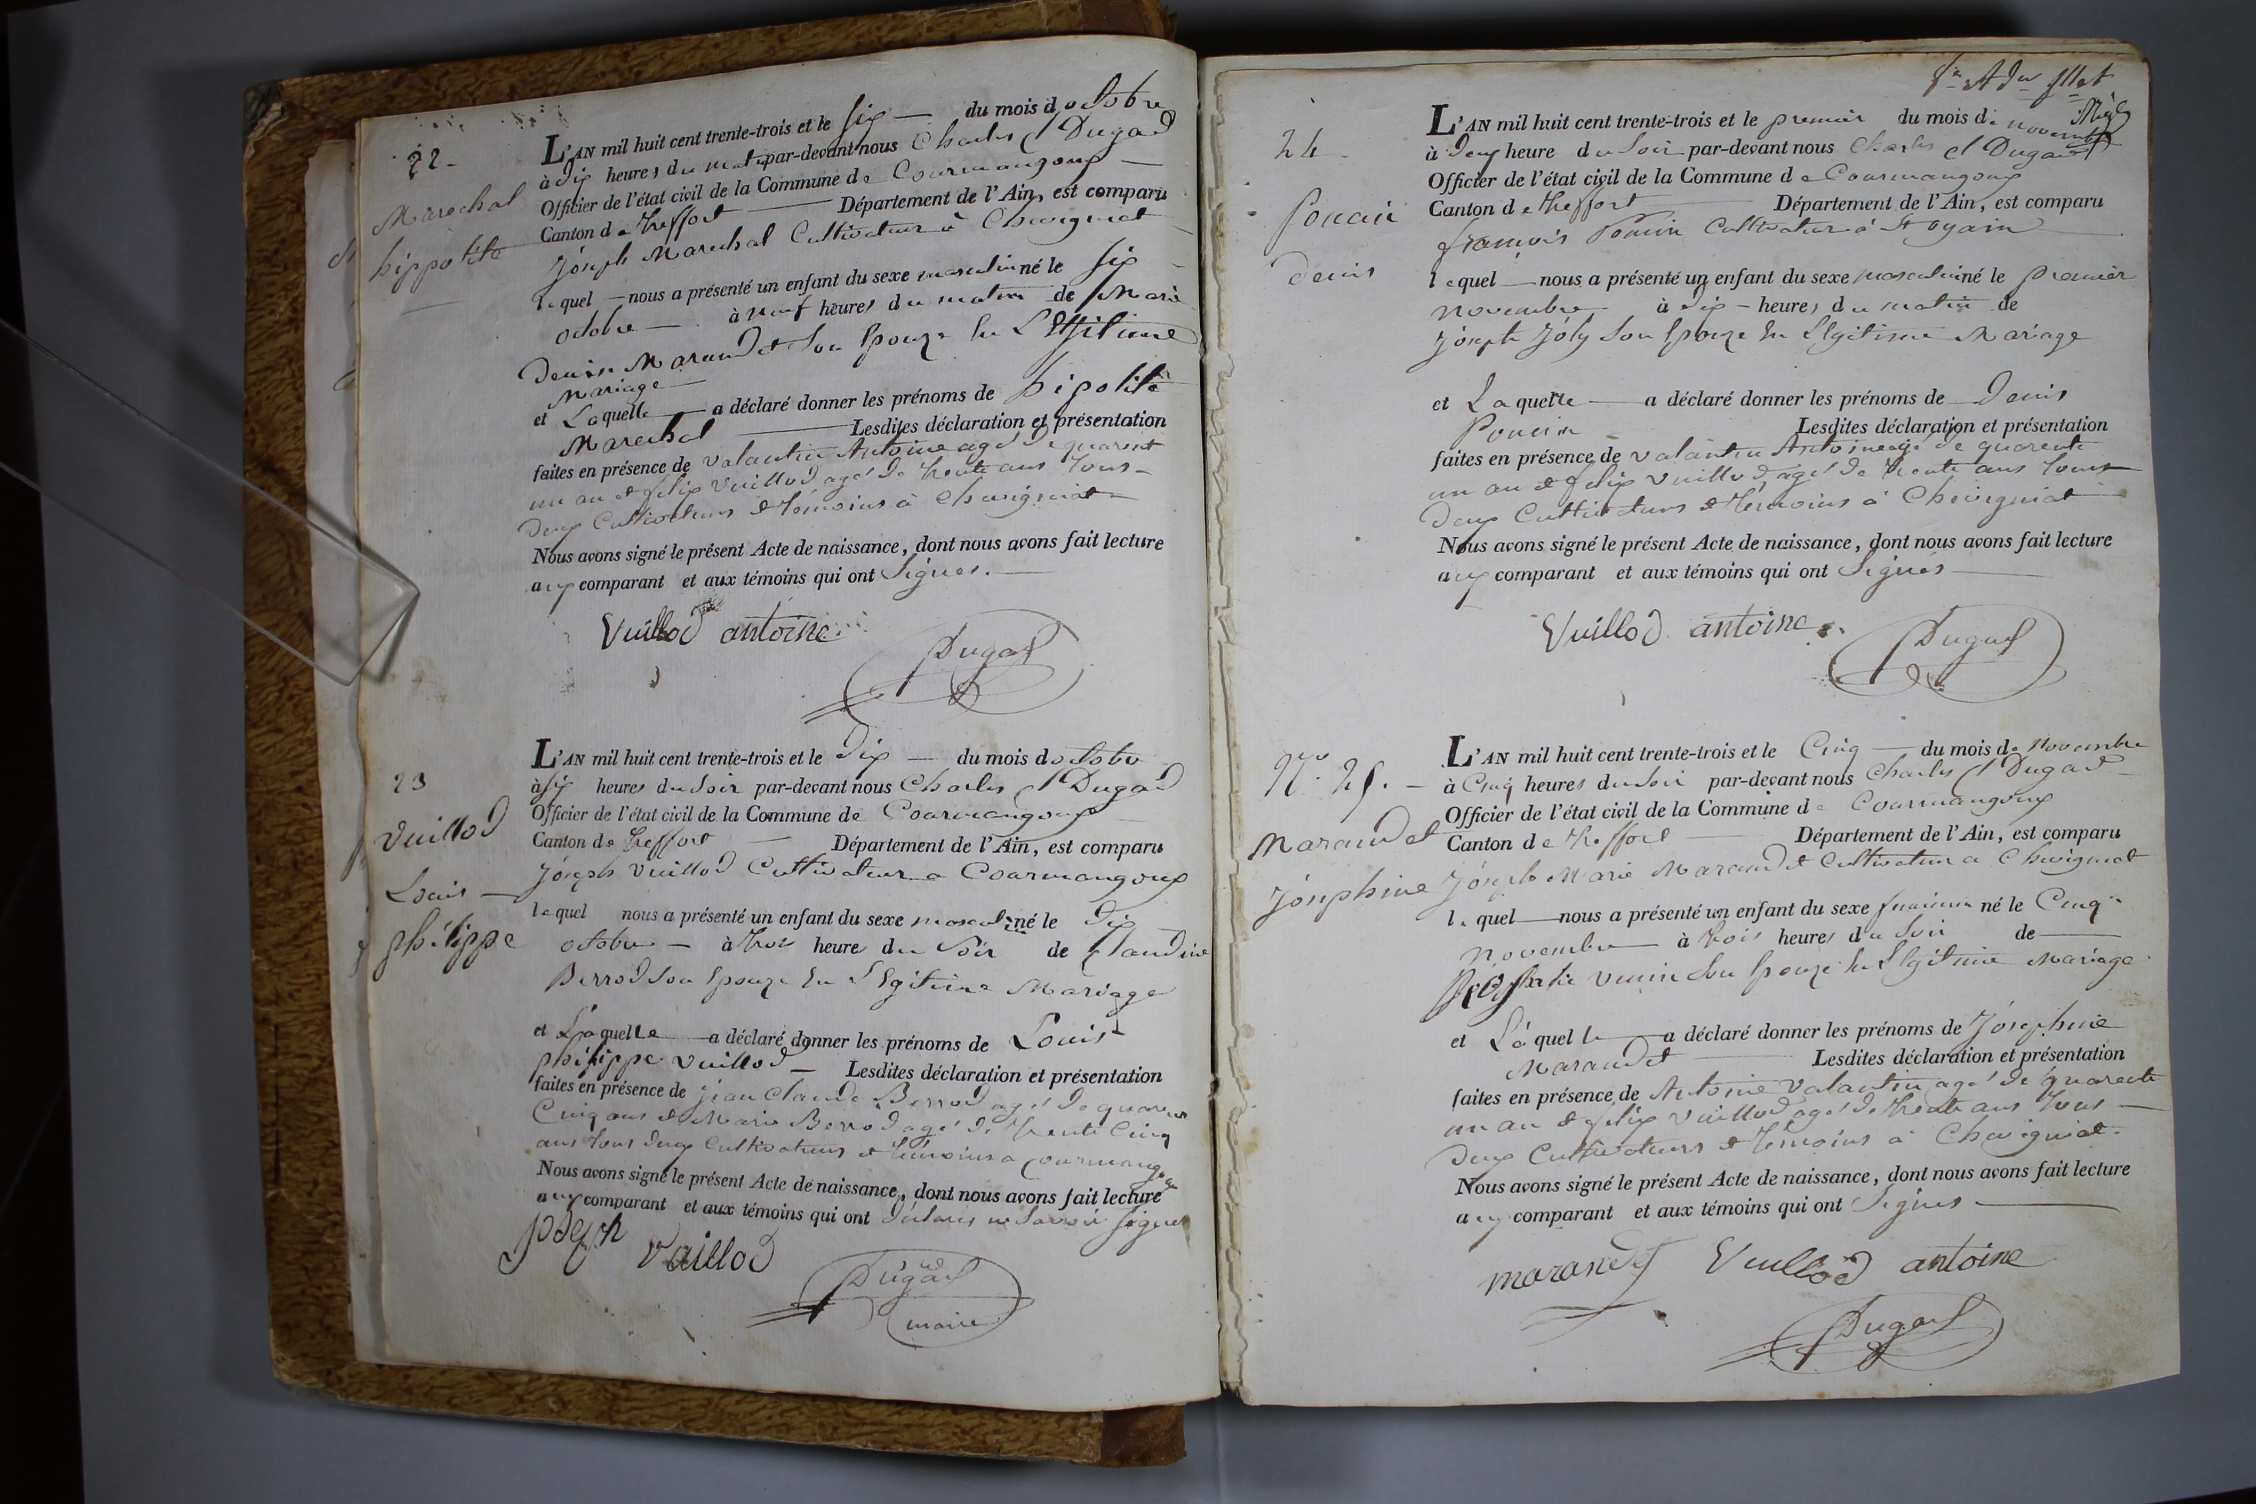 22
Marechal
hippolite
L'AN mil huit cent trente-trois et le six du mois doctobre
à dix heures du matin par-devant nous Charles Dugad
Officier de l'état civil de la Commune de Courmangoux
Canton de treffort Département de l'Ain, est comparu
Joseph Marechal Cultivateur à Chevignat
lequel nous a présenté un enfant du sexe masculin né le six
octobre à neuf heures du matin de Marie
Denise Marandet Son Epouze En Légitime
Mariage
et Laquelle a déclaré donner les prénoms de hipolite
Marechal Lesdites déclaration et présentation
faites en présence de valantin Antoine agé de quarente
un an et felix Vuillod agé de trente ans tous
deux Cultivateurs et témoins à Chevigniat
Nous avons signé le présent Acte de naissance, dont nous avons fait lecture
aux comparant et aux témoins qui ont Signés.
Vuillod antoine
Dugad
23
Vuillod
Louis
philippe
L'AN mil huit cent trente-trois et le dix du mois doctobre
à six heures du Soir par-devant nous Charles Dugad
Officier de l'état civil de la Commune de Courmangoux
Canton de treffort Département de l'Ain, est comparu
Joseph Vuillod Cultivateur a Courmangoux
lequel nous a présenté un enfant du sexe masculin né le dix
octobre à trois heure du Soir de Claudine
Berrod Son Epouze En Légitime Mariage
et Laquelle a déclaré donner les prénoms de Louis
philippe Vuillod Lesdites déclaration et présentation
faites en présence de jean Claude Berrod agé de quarente
Cinq ans et Marie Berrod agé de trente Cinq
ans tous deux Cultivateurs et témoins a Courmangoux
Nous avons signé le présent Acte de naissance, dont nous avons fait lecture
aux comparant et aux témoins qui ont déclarés ne Savoir signer
joseph vuillod
Dugad
maire
24
Poncin
Denis
L'AN mil huit cent trente-trois et le premier du mois de novembre
à deux heure du Soir par-devant nous Charles Dugad
Officier de l'état civil de la Commune de Courmangoux
Canton de treffort Département de l'Ain, est comparu
françois Poncin Cultivateur à St oyain
lequel nous a présenté un enfant du sexe masculin né le premier
novembre à dix heures du matin de
Joseph Joly Son Epouze En Légitime Mariage
et Laquelle a déclaré donner les prénoms de Denis
Poncin Lesdites déclaration et présentation
faites en présence de valantin Antoine agé de quarente
un an et felix vuillod agé de trente ans tous
deux Cultivateurs et témoins à Chevigniat
Nous avons signé le présent Acte de naissance, dont nous avons fait lecture
aux comparant et aux témoins qui ont Signés
Vuillod antoine
Dugad
No. 25.
Marandet
Joséphine
L'AN mil huit cent trente-trois et le Cinq du mois de Novembre
à Cinq heures du Soir par-devant nous Charles Dugad
Officier de l'état civil de la Commune de Courmangoux
Canton de treffort Département de l'Ain, est comparu
Joseph Marie Marandet Cultivateur a Chevignat
lequel nous a présenté un enfant du sexe feminin né le Cinq
Novembre à trois heures du Soir de
Son Epouze En Légitime Mariage
et Laquelle a déclaré donner les prénoms de Joséphine
Marandet Lesdites déclaration et présentation
faites en présence de Antoine valantin agé de quarente
un an et felix vuillod agé de trente ans tous
deux Cultivateurs et témoins à Chevigniat
Nous avons signé le présent Acte de naissance, dont nous avons fait lecture
aux comparant et aux témoins qui ont Signés
marandet Vuillod antoine
Dugad